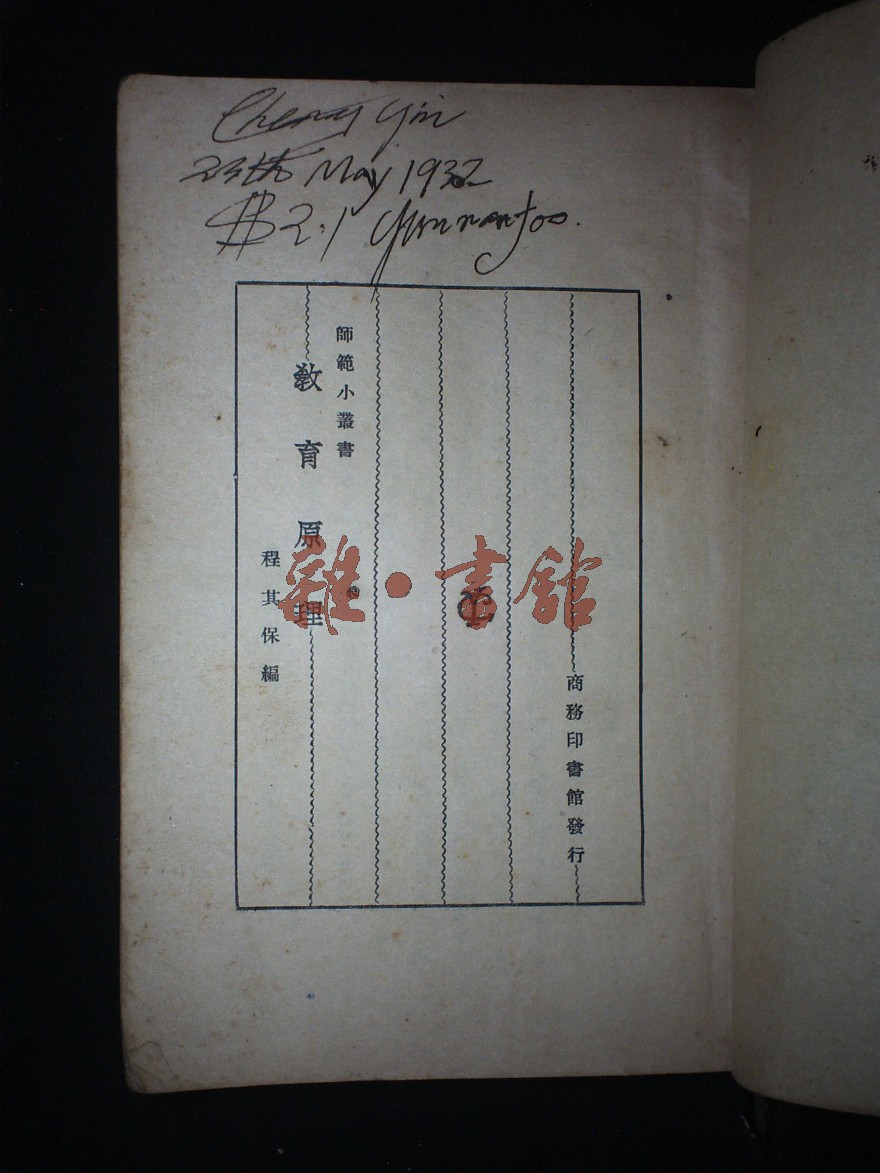 Cheng Yin
25th May 1932
$2.1 Yunnanfoo.
師範小叢書
教育原理
程其保編
商務印書館發行
雜·書館